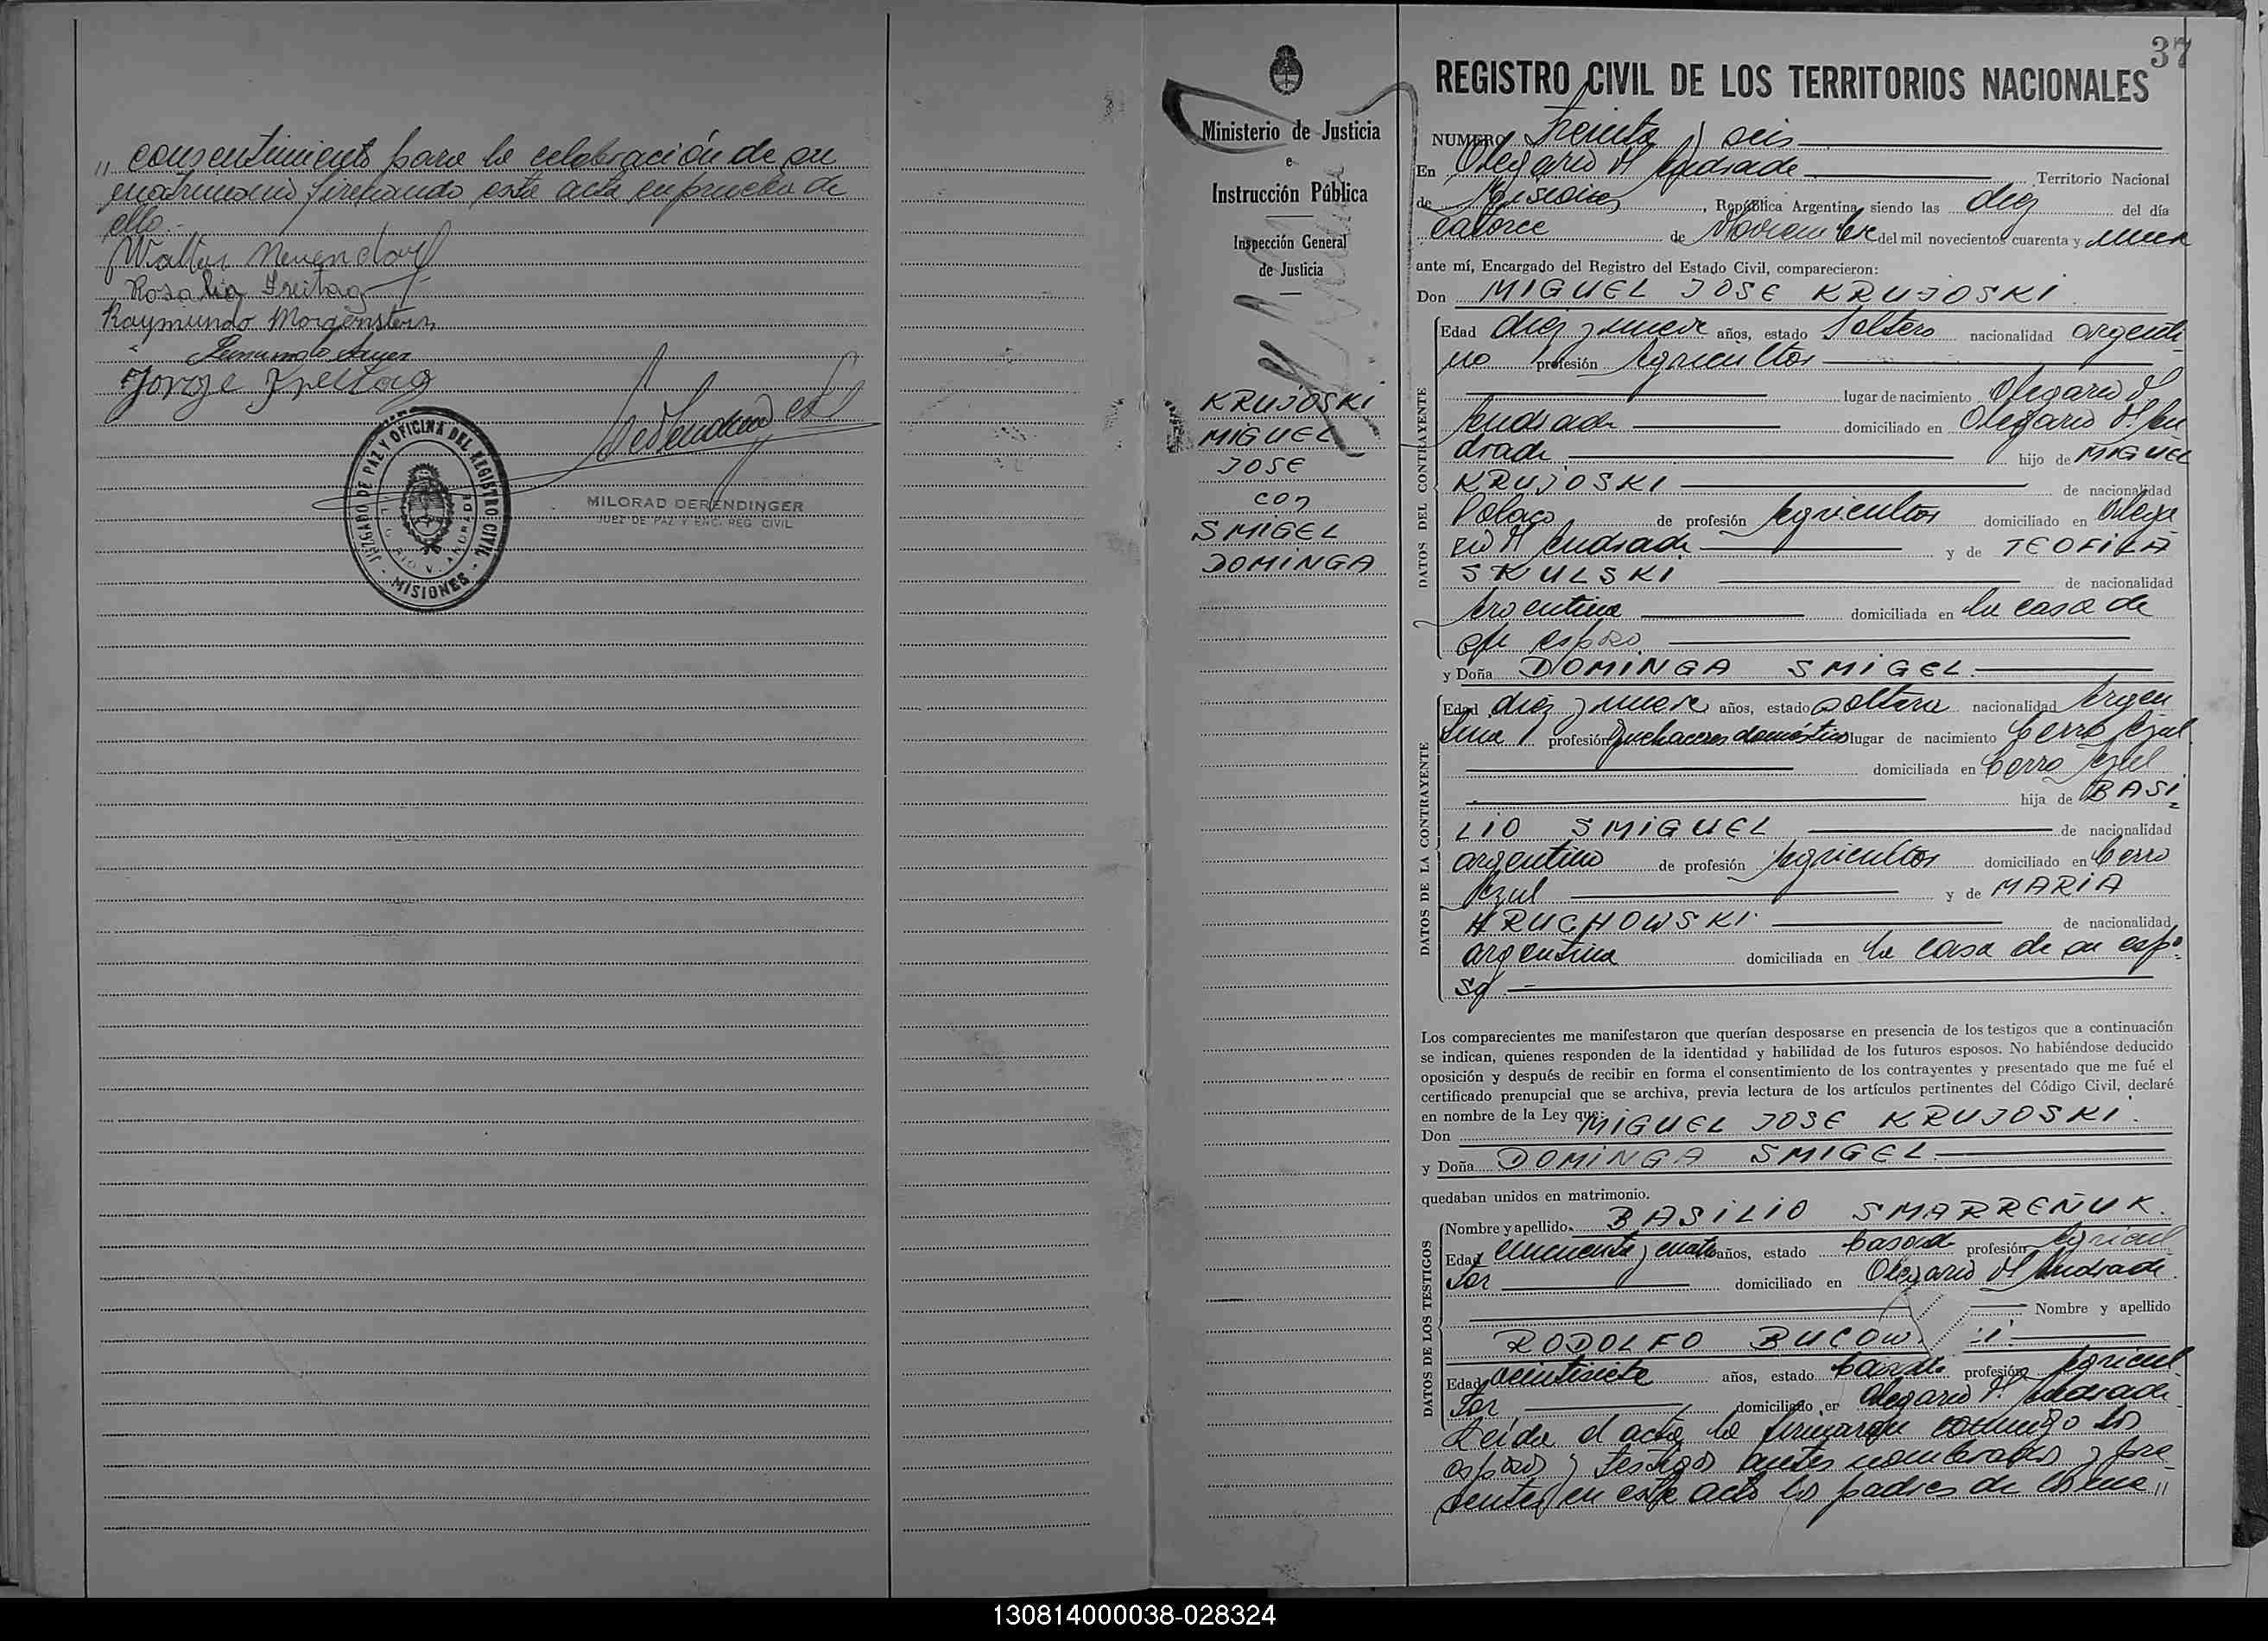 " consentimiento para la celebración de su
matrimonio firmando esta acta en prueba de
ello.-
Walter Neuendorf
Rosalia Freitag
Raymundo Morgenstern
Jorge Freitag
JUZGADO DE PAZ Y OFICINA DEL REGISTRO CIVIL
- MISIONES -
MILORAD DERENDINGER
JUEZ DE PAZ Y ENC. REG. CIVIL
Ministerio de Justicia
e
Instrucción Pública
Inspección General
de Justicia
KRUJOSKI
MIGUEL
JOSE
con
SMIGEL
DOMINGA
37
REGISTRO CIVIL DE LOS TERRITORIOS NACIONALES
NUMERO Treinta y seis
En Olegario V Andrade Territorio Nacional
de Misiones, República Argentina, siendo las diez del día
catorce de Noviembre del mil novecientos cuarenta y nueve
ante mí, Encargado del Registro del Estado Civil, comparecieron:
Don MIGUEL JOSE KRUJOSKI
DATOS DEL CONTRAYENTE
Edad diez y nueve años, estado soltero nacionalidad argenti
no profesión Agricultor
lugar de nacimiento Olegario V
Andrade domiciliado en Olegario V An
drade hijo de MIGUEL
KRUJOSKI de nacionalidad
Polaco de profesión Agricultor domiciliado en Olega
rio V Andrade y de TEOFILA
SKULSKI de nacionalidad
Argentina domiciliada en la casa de
su esposo
y Doña DOMINGA SMIGEL.
DATOS DE LA CONTRAYENTE
Edad diez y nueve años, estado soltera nacionalidad Argen
tina profesión Quehaceres domésticos lugar de nacimiento Cerro Azul
domiciliada en Cerro Azul
hija de BASI=
LIO SMIGUEL de nacionalidad
argentino de profesión Agricultor domiciliado en Cerro
Azul y de MARIA
HRUCHOWSKI de nacionalidad
argentina domiciliada en la casa de su espo=
so.-
Los comparecientes me manifestaron que querían desposarse en presencia de los testigos que a continuación
se indican, quienes responden de la identidad y habilidad de los futuros esposos. No habiéndose deducido
oposición y después de recibir en forma el consentimiento de los contrayentes y presentado que me fué el
certificado prenupcial que se archiva, previa lectura de los artículos pertinentes del Código Civil, declaré
en nombre de la Ley que:
Don MIGUEL JOSE KRUJOSKI.
y Doña DOMINGA SMIGEL.
quedaban unidos en matrimonio.
DATOS DE LOS TESTIGOS
Nombre y apellido BASILIO SMARREÑUK.
Edad cincuenta y cuatro años, estado casado profesión Agricul
tor domiciliado en Olegario V Andrade
Nombre y apellido
RODOLFO BUCOW.
Edad veintisiete años, estado casado profesión Agricul
tor domiciliado en Olegario V. Andrade
Leida el acta la firmaron conmigo los
esposos y testigos antes nombrados y pre
sentes en este acto los padres de
130814000038-028324